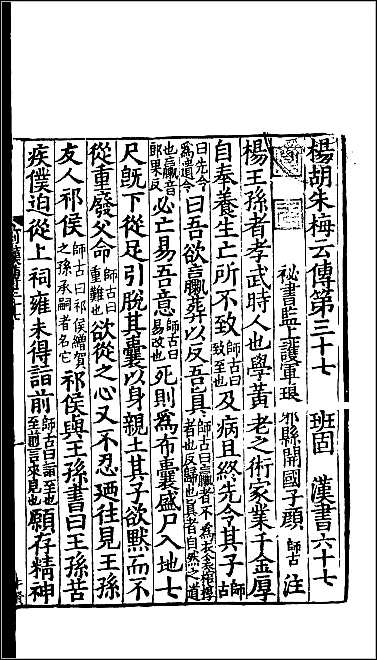 楊胡朱梅云傳第三十七 班固 漢書六十七
祕書監上護軍琅邪縣開國子顏師古注
楊王孫者孝武時人也學黃老之術家業千金厚
自奉養生亡所不致師古曰致至也及病且終先令其子師古
曰先令為遺令曰吾欲臝葬以反吾真師古曰臝者不為衣衾棺槨者也反歸也真者自然之道
也臝音郎果反必亡易吾意師古曰易改也死則為布囊盛尸入地七
尺旣下從足引脫其囊以身親土其子欲默而不
從重廢父命師古曰重難也欲從之心又不忍廼往見王孫
友人祁侯師古曰祁侯繒賀之孫承嗣者名它祁侯與王孫書曰王孫苦
疾僕迫從上祠雍未得詣前師古曰詣至也至前言來見也願存精神